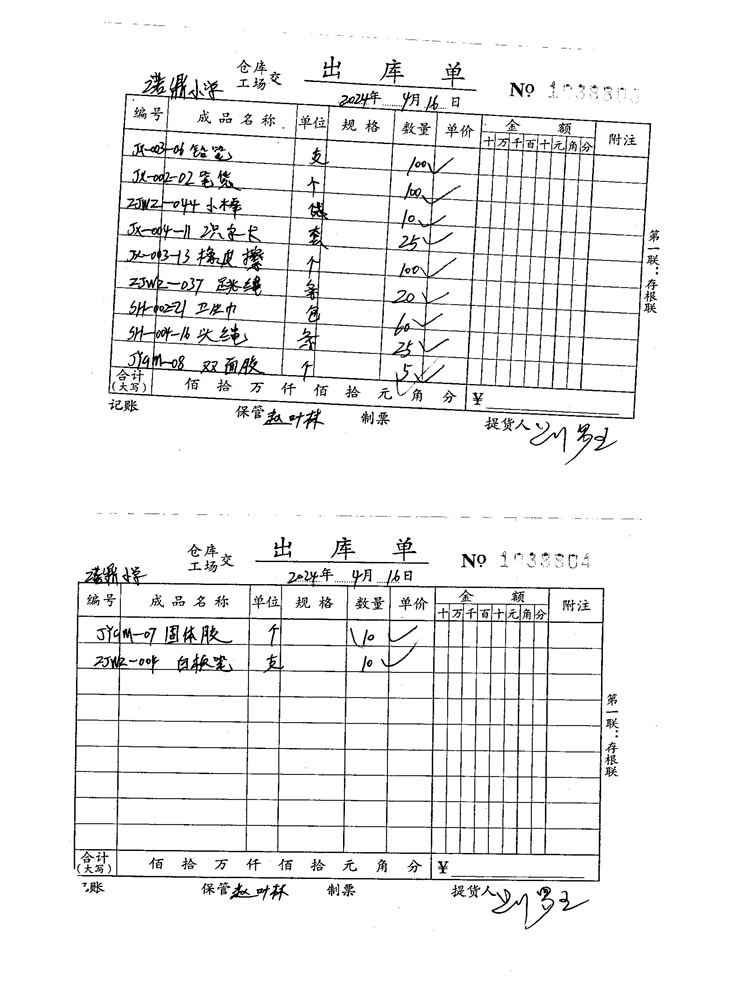 仓库
工场交 出库单
诺鼎小学 2024年4月16日 No 1038803
编号 成品名称 单位 规格 数量 单价 金额 附注
十万千百十元角分
JX-003-06 铅笔 支 100
JX-002-02 笔袋 个 100
ZJWZ-044 小棒 袋 10
JX-004-11 识字卡 套 25
JX-003-13 橡皮擦 个 100
ZJWZ-037 跳绳 条 20
SH-002-21 卫生巾 包 60
SH-004-16 头绳 条 25
JYGM-08 双面胶 个 5
合计(大写) 佰拾万仟佰拾元角分 ¥
记账 保管 赵叶林 制票 提货人
第一联:存根联
仓库
工场交 出库单
诺鼎小学 2024年4月16日 No 1038804
编号 成品名称 单位 规格 数量 单价 金额 附注
十万千百十元角分
JYGM-07 固体胶 个 10
ZJWZ-004 白板笔 支 10
合计(大写) 佰拾万仟佰拾元角分 ¥
记账 保管 赵叶林 制票 提货人
第一联:存根联